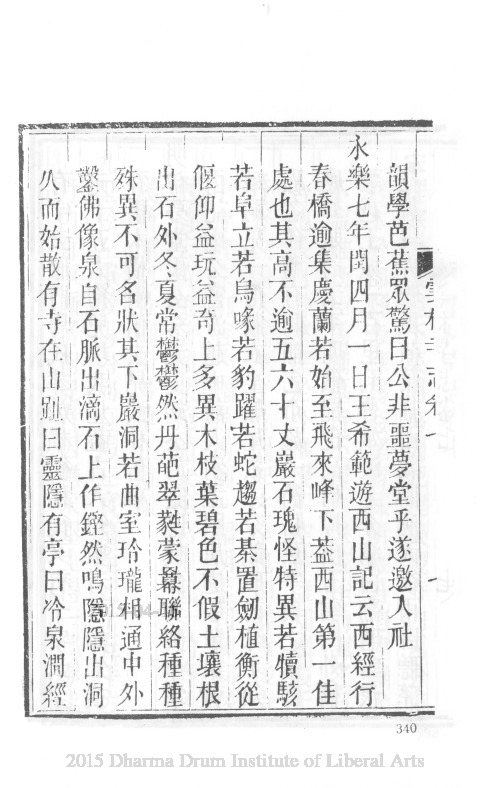 韻學芭蕉眾驚曰公非噩夢堂乎遂邀入社
永樂七年閏四月一日王希範遊西山記云西經行
春橋逾集慶蘭若始至飛來峰下葢西山第一佳
處也其高不逾五六十丈巖石瑰怪特異若犢駭
若阜立若鳥喙若豹躍若蛇趨若棊置劒植衡從
偃仰益玩益奇上多異木枝葉碧色不假土壤根
出石外冬夏常鬱鬱然丹葩翠蕤蒙羃聯絡種種
殊異不可名狀其下巖洞若曲室玲瓏相通中外
鑿佛像泉自石脈出滴石上作鏗然鳴隱隱出洞
久而始散有寺在山趾曰靈隱有亭曰冷泉澗經
340
2015 Dharma Drum Institute of Liberal Arts